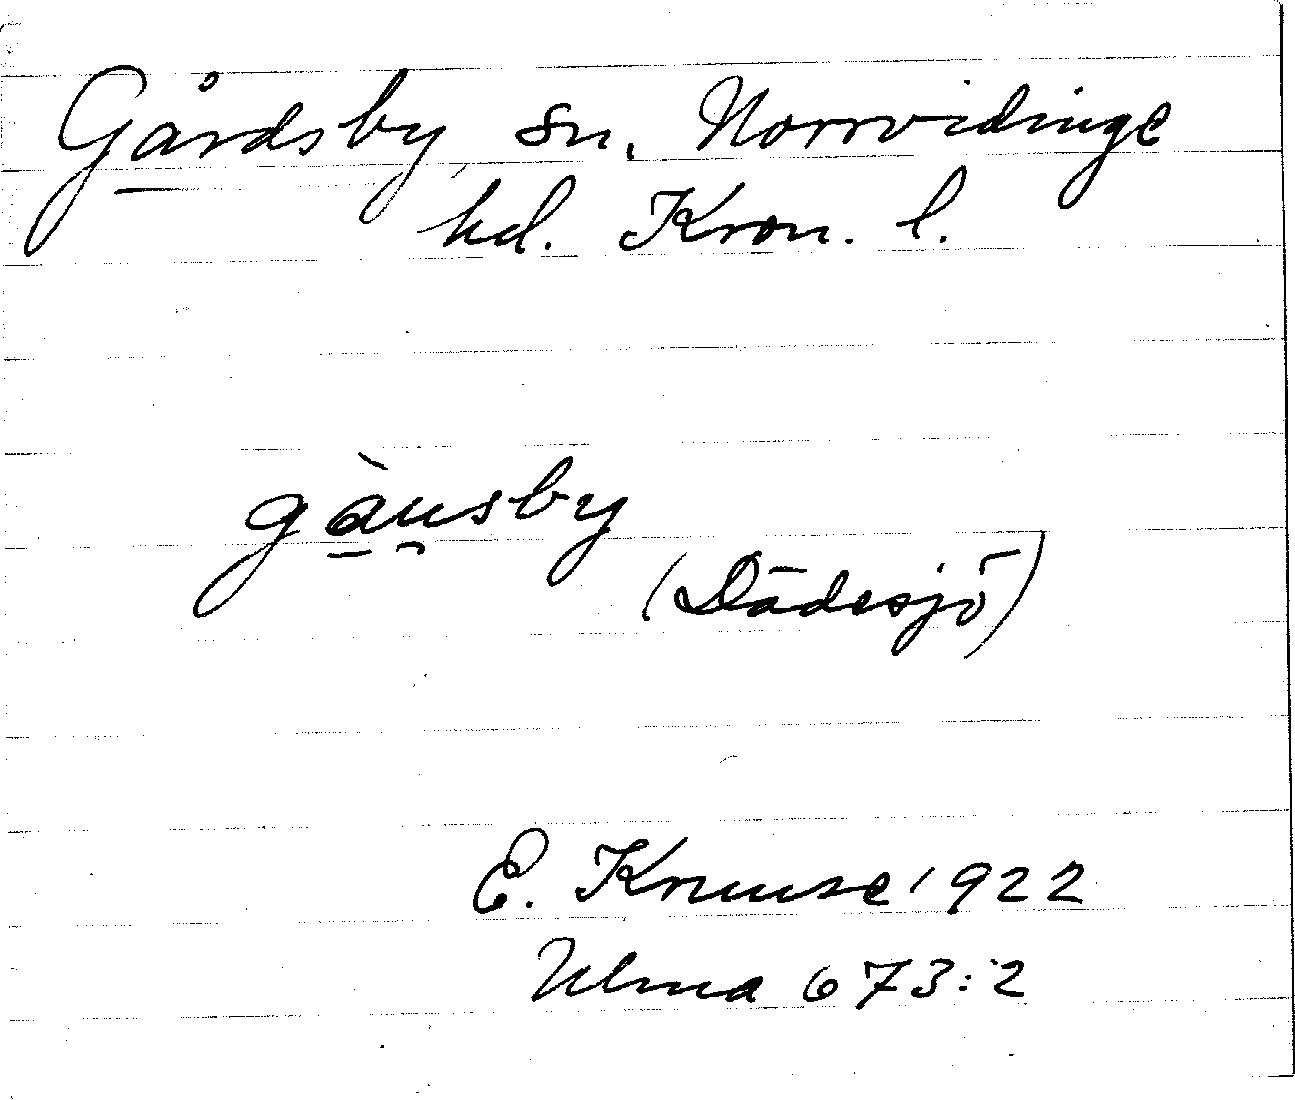 Gårdsby sn. Norrvidinge
hd. Kron. l.
gàu̯sby
(Dädesjö)
E. Knuuse 1922
Ulma 673:2